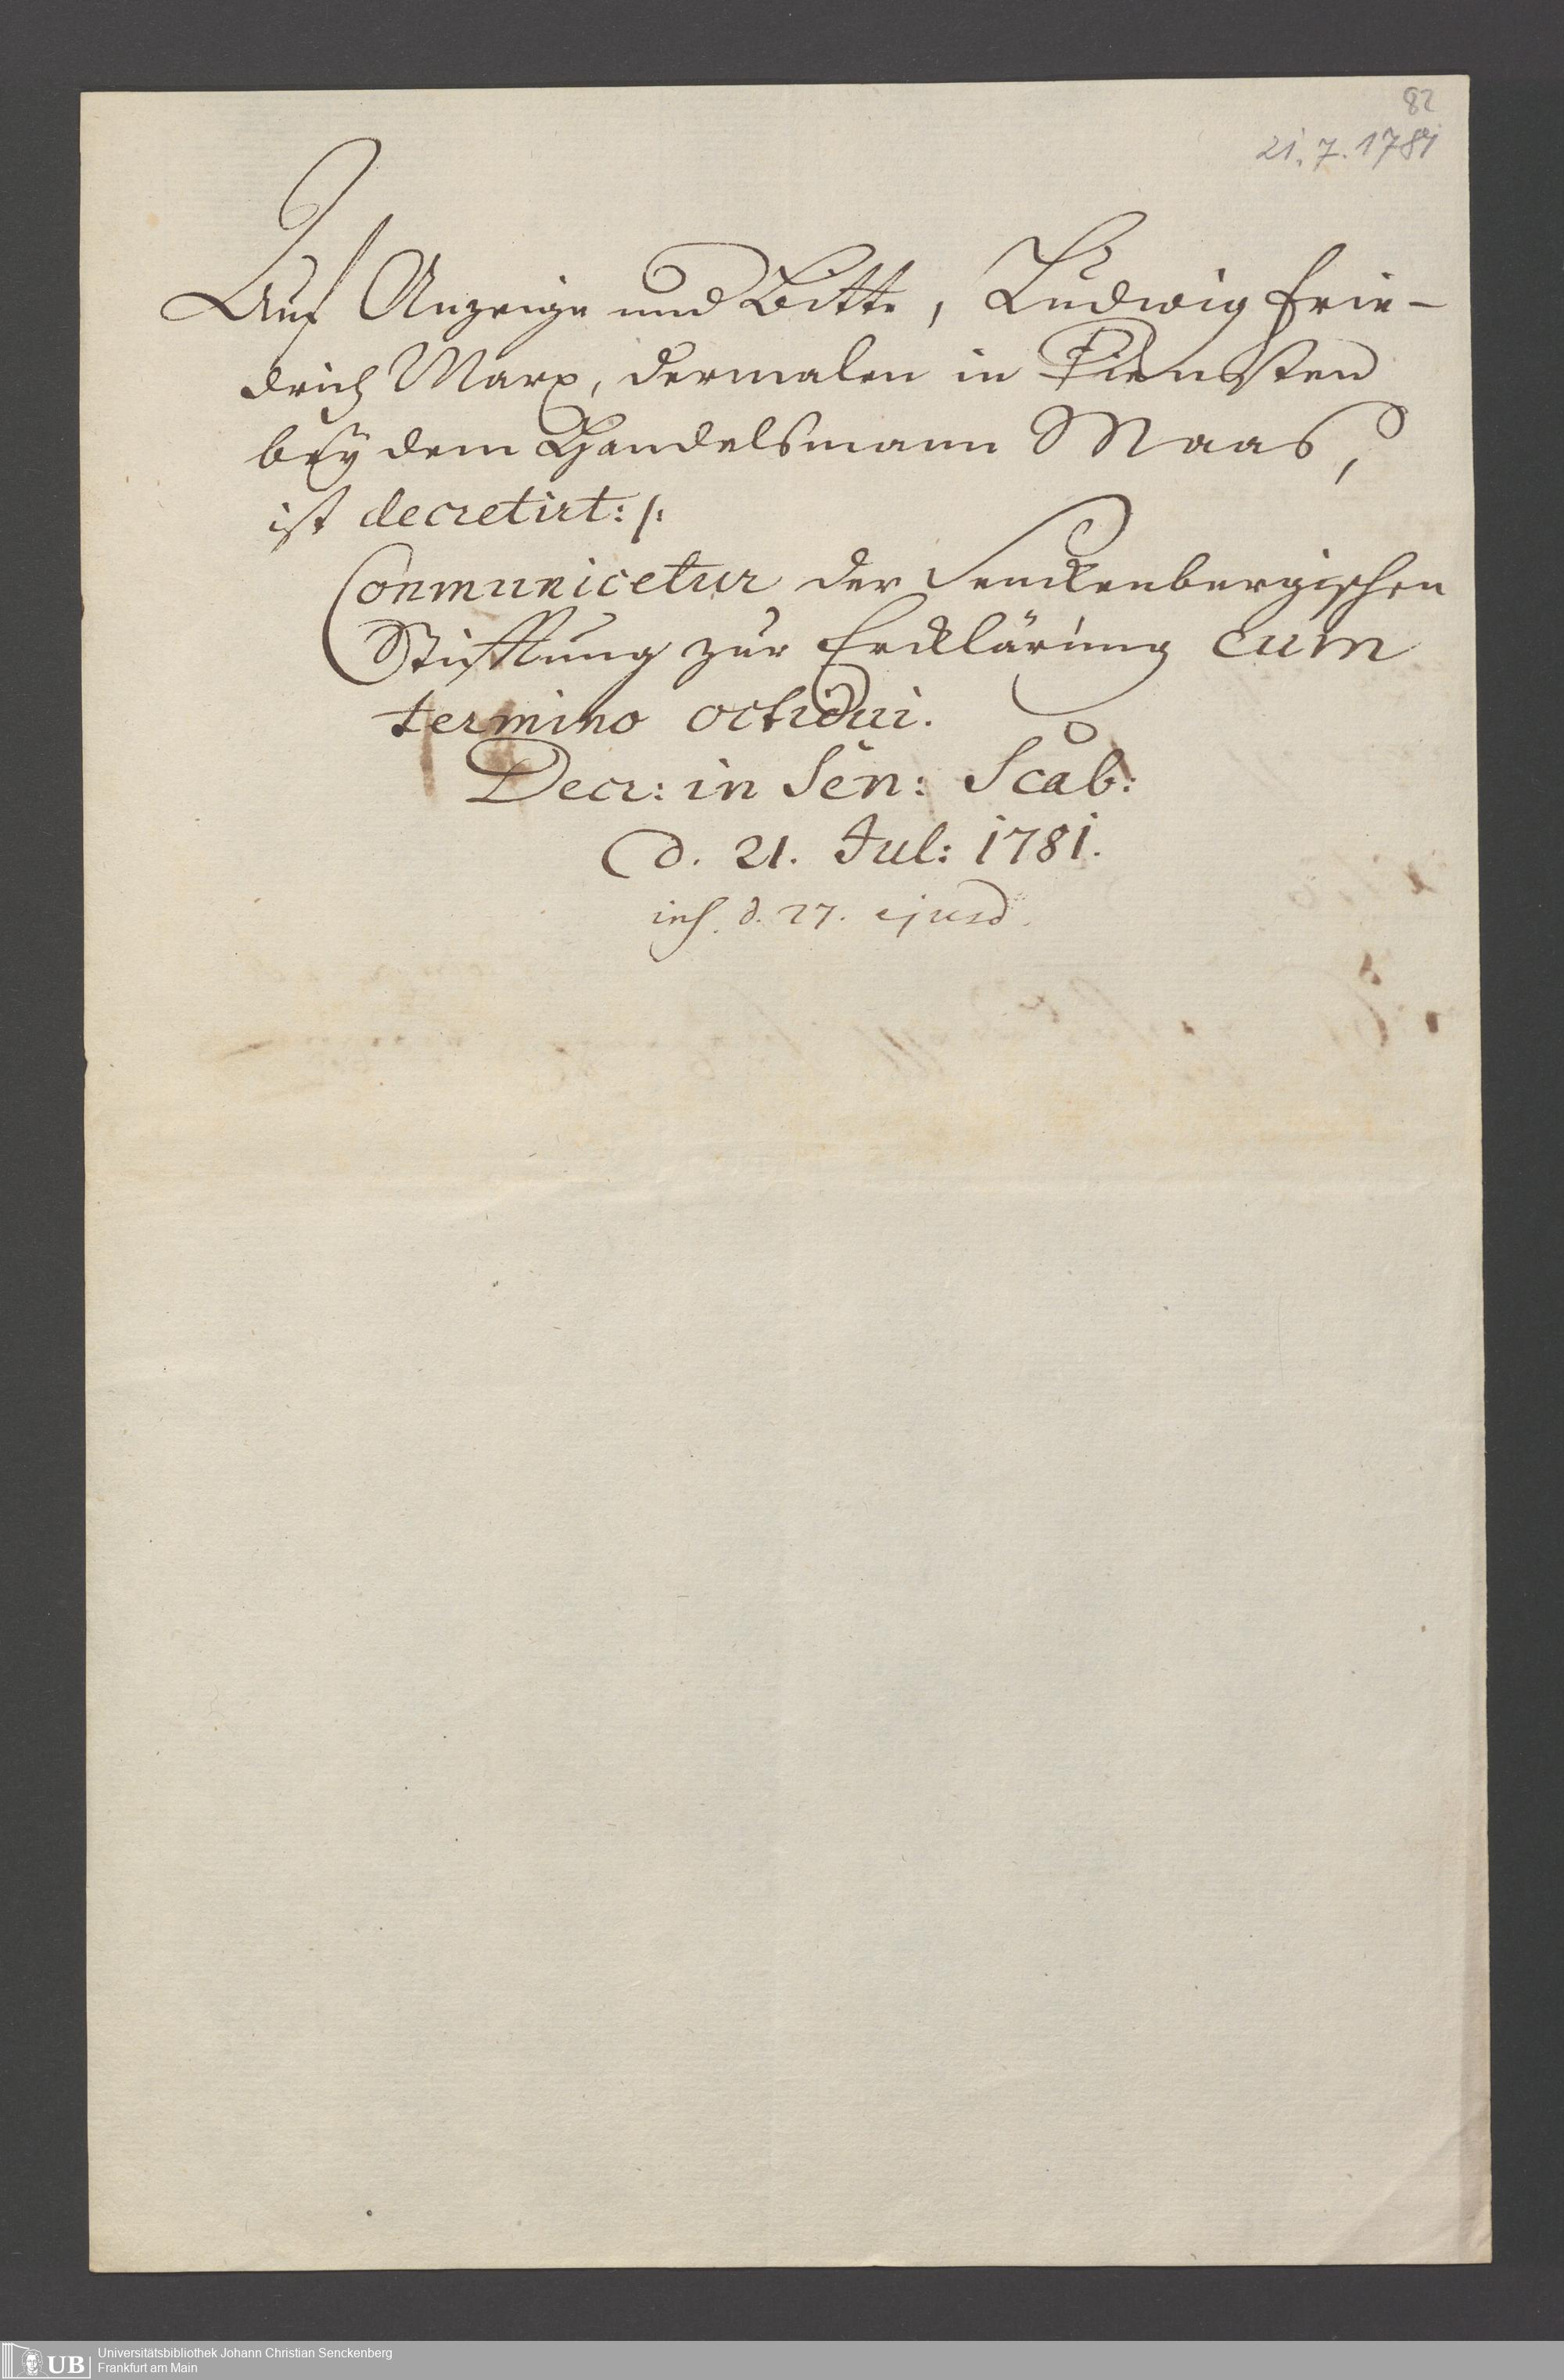 82
21. 7. 1781
Auf Anzeige und Bitte, Ludwig Frie-
drich Marx, dermalen in Diensten
bey dem Handelsmann Maas,
ist decretirt: /:
Conmunicetur der Senckenbergischen
Stifftung zur Ercklärung cum
termino octidui.
Decr: in Sen: Scab:
d. 21. Jul: 1781.
ins. d. 27. ejusd.
UB
Universitätsbibliothek Johann Christian Senckenberg
Frankfurt am Main